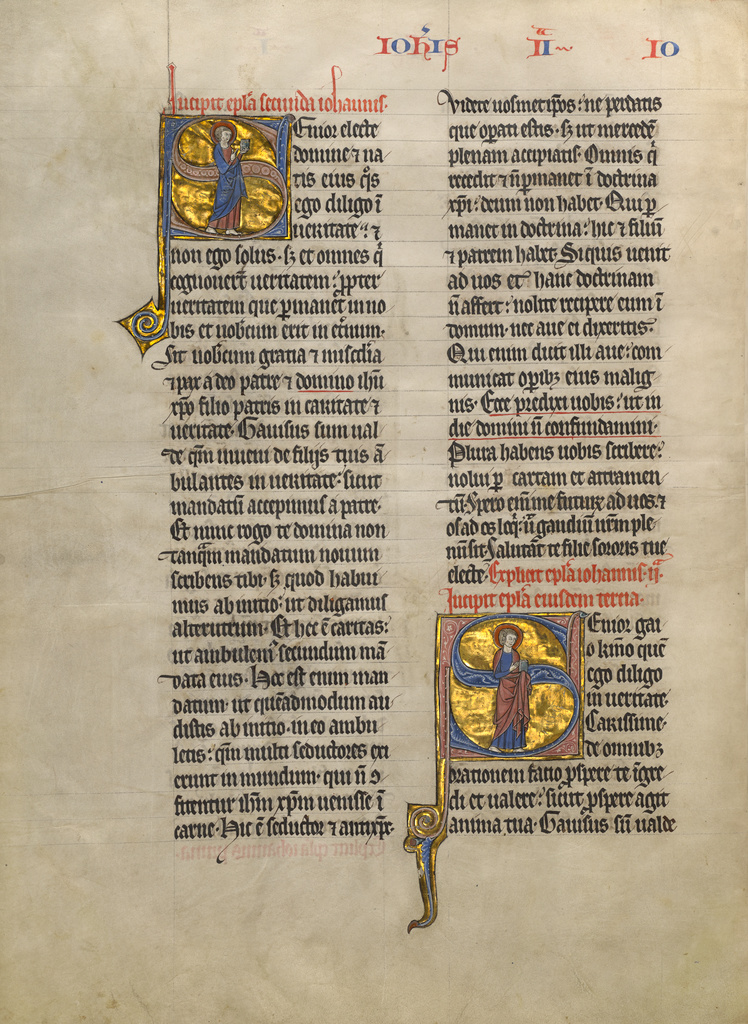 IOH'IS II IO
Incipit epl'a secunda iohannis.
Senior electe
domine ⁊ na
tis eius q̊s
ego diligo ī
ueritate. ⁊
non ego solus. sꝫ et omnes q̄
cognouer̄t ueritatem. ꝓpter
ueritatem que ꝑmanet in no
bis et uobcum erit in et̄num.
Sit uobcum gratia ⁊ mis̄cdia
⁊ pax a deo patre ⁊ domino ihu
xp̄o filio patris in caritate ⁊
ueritate. Gauisus sum ual
de qm̄ inueni de filijs tuis ā
bulantes in ueritate: sicut
mandatū accepimus a patre.
Et nunc rogo te domina non
tanq̄m mandatum nouum
scribens tibi. sꝫ quod habui
mus ab initio: ut diligamus
alterutrum. Et hec ē caritas:
ut ambulem' secundum mā
data eius. Hoc est enim man
datum. ut quēadmodum au
distis ab initio. in eo ambu
letis: qm̄ multi seductores exi
erunt in mundum. qui n̄ ꝯ
fitentur ihm̄ xp̄m uenisse ī
carne. Hic ē seductor ⁊ antixp̄c.
Videte uosmetip̄os: ne perdatis
que oꝑati estis. sꝫ ut mercedē
plenam accipiatis. Omnis q̄
recedit ⁊ n̄ ꝑmanet ī doctrina
xp̄i: deum non habet. Qui ꝑ
manet in doctrina: hic ⁊ filiū
⁊ patrem habet. Si quis uenit
ad uos et hanc doctrinam
n̄ affert: nolite recipere eum ī
domum. nec aue ei dixeritis.
Qui enim dicit illi aue: com
municat oꝑibꝫ eius malig
nis. Ecce predixi uobis: ut in
die domini n̄ confundamini.
Plura habens uobis scribere:
nolui ꝑ cartam et attramen
tū. Spero em̄ me futurꝝ ad uos. ⁊
os ad os loq̄: ut gaudiū ur̄m ple
nū sit. Salutāt te filie sororis tue
electe. Explicit epl'a iohannis ii.
Incipit epl'a eiusdem tercia.
Senior gai
o k̄mo quē
ego diligo
in ueritate.
Carissime.
de omnibꝫ
orationem facio ꝓspere te īgre
di et ualere: sicut ꝓspere agit
anima tua. Gauisus sū ualde